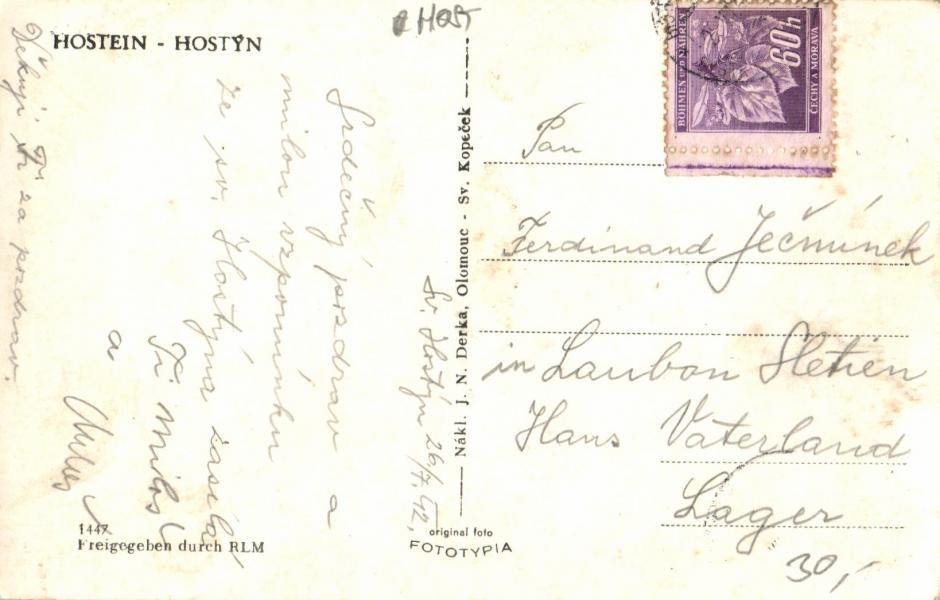 e HOST
HOSTEIN - HOSTÝN
Srdečný pozdrav a
milou vzpomínku
ze sv. Hostýna zasílá
Ti Miloš
a
Děkuji Ti za pozdrav.
Sv. Hostýn 26/7. 42.
Nákl. J. N. Derka, Olomouc - Sv. Kopeček
BÖHMEN UND MÄHREN
60h
ČECHY A MORAVA
Pan
Ferdinand Ječmínek
in Laubon Sletien
Hans Vaterland
Lager
30,-
1447
Freigegeben durch RLM
original foto
FOTOTYPIA